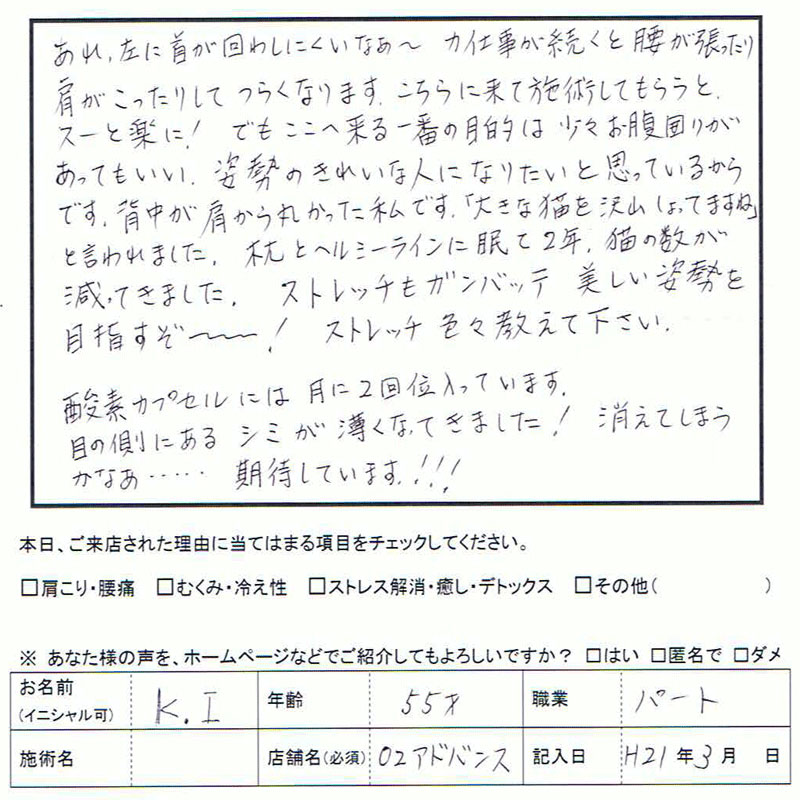 あれ,左に首が回わしにくいなぁ〜 力仕事が続くと腰が張ったり
肩がこったりしてつらくなります.こちらに来て施術してもらうと,
スーと楽に! でもここへ来る一番の目的は少々お腹回りが
あってもいい.姿勢のきれいな人になりたいと思っているから
です.背中が肩から丸かった私です.「大きな猫を沢山しょってますね」
と言われました.枕とヘルミーラインに眠て2年.猫の数が
減ってきました. ストレッチもガンバッテ 美しい姿勢を
目指すぞ〜〜〜! ストレッチ色々教えて下さい.
酸素カプセルには月に2回位入っています.
目の側にあるシミが薄くなってきました! 消えてしまう
かなぁ…… 期待しています.!!!
本日、ご来店された理由に当てはまる項目をチェックしてください。
□肩こり・腰痛 □むくみ・冷え性 □ストレス解消・癒し・デトックス □その他( )
※ あなた様の声を、ホームページなどでご紹介してもよろしいですか? □はい □匿名で □ダメ
お名前 (イニシャル可) K.I 年齢 55才 職業 パート
施術名 店舗名(必須) O2アドバンス 記入日 H21年3月 日